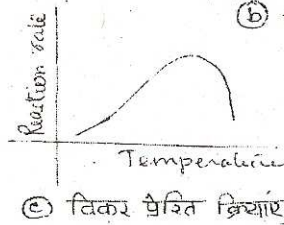 (b)
Reaction rate
Temperature
(c) विकर प्रेरित क्रियाएं